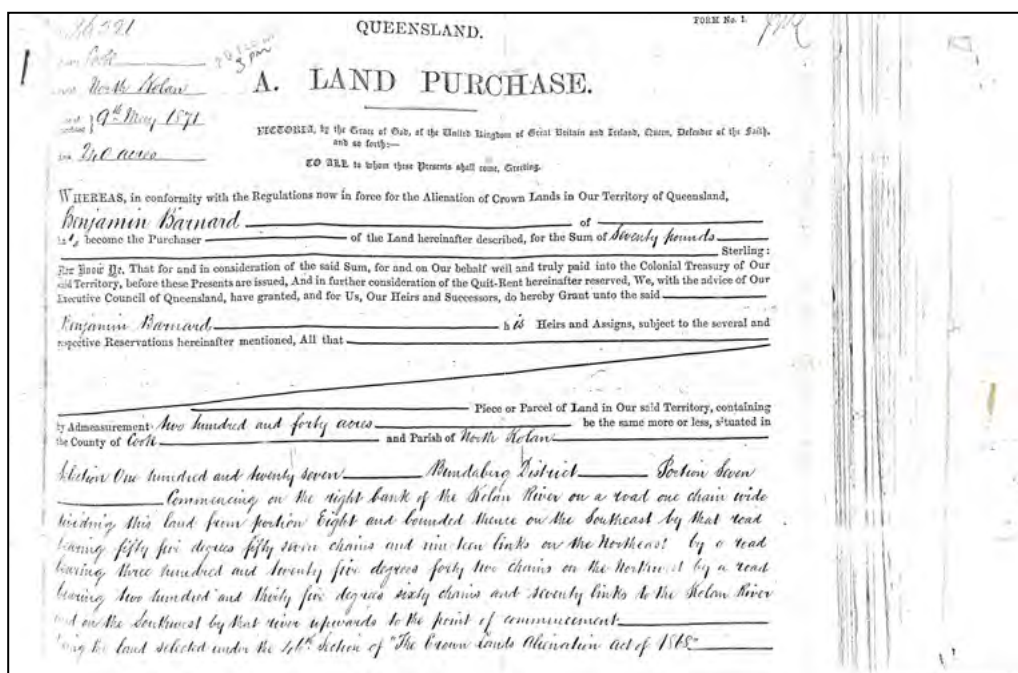 36321
QUEENSLAND.
FORM No. 1.
Cook
3 pm
North Kolan
A. LAND PURCHASE.
9th May 1871
240 acres
VICTORIA, by the Grace of God, of the United Kingdom of Great Britain and Ireland, Queen, Defender of the Faith,
and so forth:—
TO ALL to whom these Presents shall come, Greeting.
WHEREAS, in conformity with the Regulations now in force for the Alienation of Crown Lands in Our Territory of Queensland,
Benjamin Barnard of
has become the Purchaser of the Land hereinafter described, for the Sum of Seventy pounds
Sterling:
Now Know Ye, That for and in consideration of the said Sum, for and on Our behalf well and truly paid into the Colonial Treasury of Our
said Territory, before these Presents are issued, And in further consideration of the Quit-Rent hereinafter reserved, We, with the advice of Our
Executive Council of Queensland, have granted, and for Us, Our Heirs and Successors, do hereby Grant unto the said
Benjamin Barnard his Heirs and Assigns, subject to the several and
respective Reservations hereinafter mentioned, All that
Piece or Parcel of Land in Our said Territory, containing
by Admeasurement two hundred and forty acres be the same more or less, situated in
the County of Cook and Parish of North Kolan
Selection One hundred and twenty seven Bundaberg District Portion Seven
Commencing on the right bank of the Kolan River on a road one chain wide
dividing this land from portion Eight and bounded thence on the Southeast by that road
bearing fifty five degrees fifty seven chains and nineteen links on the Northeast by a road
bearing three hundred and twenty five degrees forty two chains on the Northwest by a road
bearing two hundred and thirty five degrees sixty chains and seventy links to the Kolan River
and on the Southwest by that river upwards to the point of commencement
being the land selected under the Section of "The Crown Lands Alienation Act of 1868"